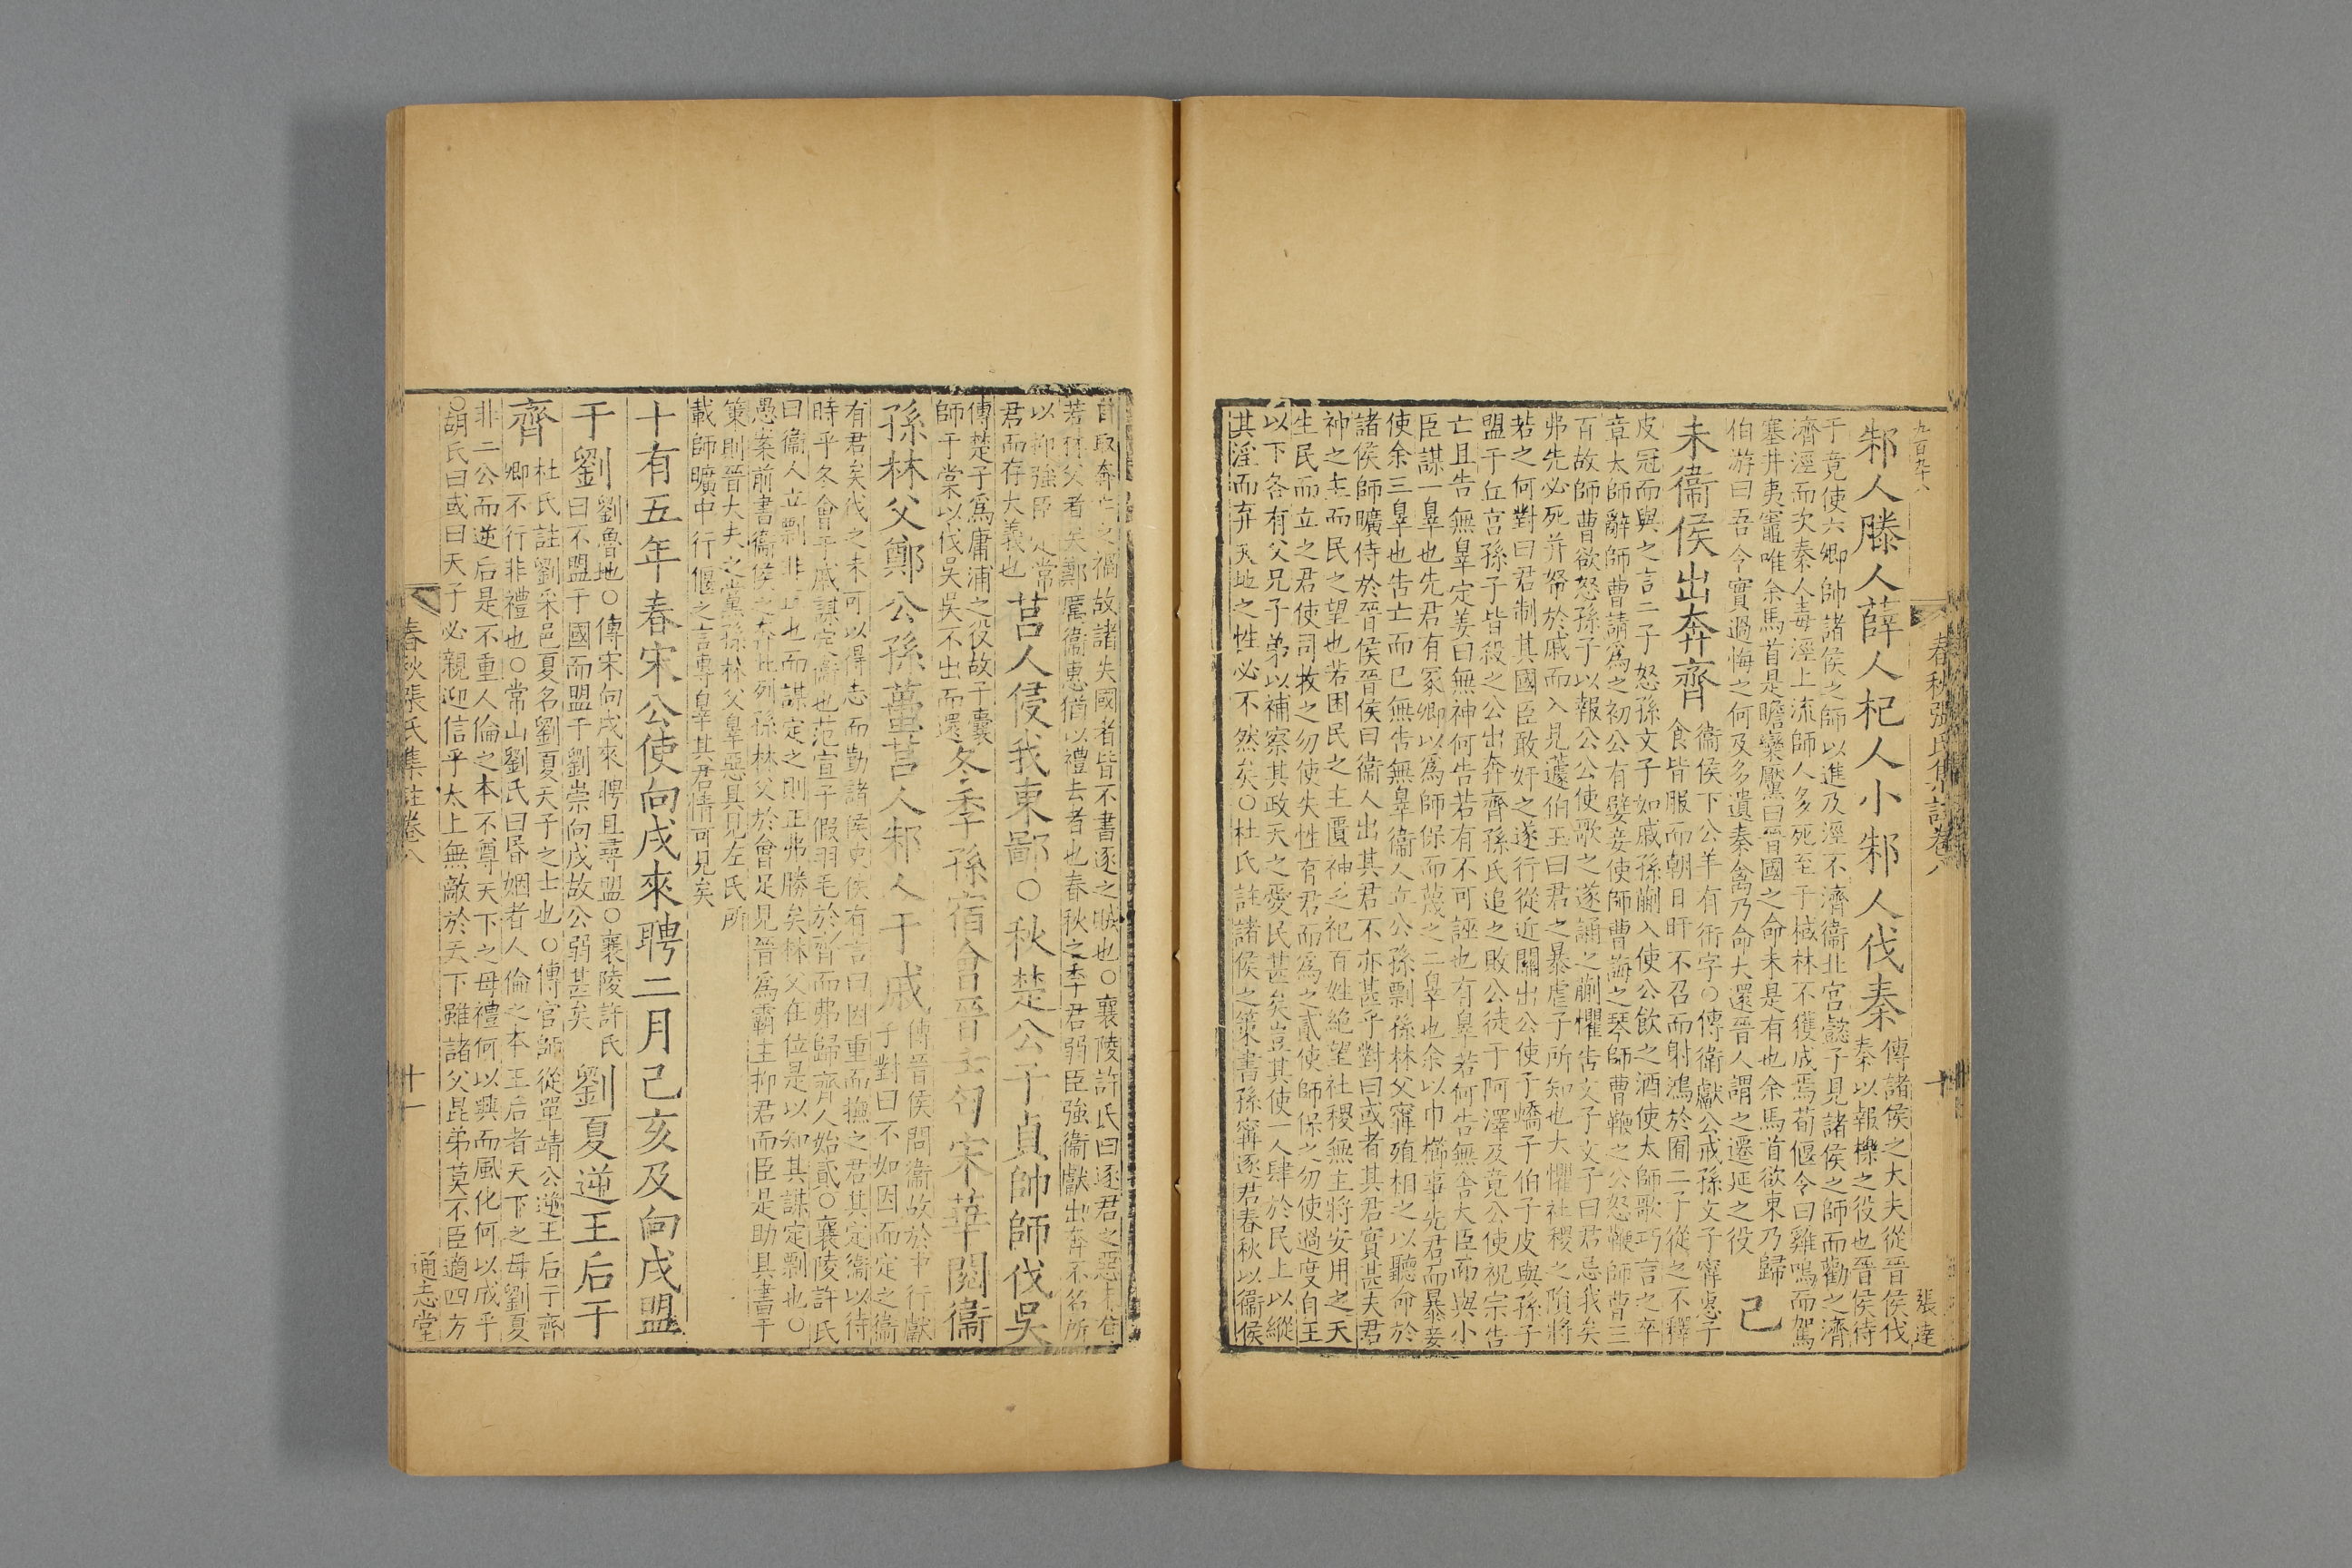 九百九十八
春秋張氏集註卷八
十
張逹
邾人滕人薛人杞人小邾人伐秦
傳諸侯之大夫從晉侯伐
秦以報櫟之役也晉侯待
于竟使六卿帥諸侯之師以進及涇不濟衞北宮懿子見諸侯之師而勸之濟
濟涇而次秦人毒涇上流師人多死至于棫林不獲成焉荀偃令曰雞鳴而駕
塞井夷竈唯余馬首是瞻欒黶曰晉國之命未是有也余馬首欲東乃歸
伯游曰吾令實過悔之何及多遺秦禽乃命大還晉人謂之遷延之役
己
未衞侯出奔齊
衞侯下公羊有衎字○傳衞獻公戒孫文子甯惠子
食皆服而朝日旰不召而射鴻於囿二子從之不釋
皮冠而與之言二子怒孫文子如戚孫蒯入使公飲之酒使太師歌巧言之卒
章太師辭師曹請爲之初公有嬖妾使師曹誨之琴師曹鞭之公怒鞭師曹三
百故師曹欲怒孫子以報公公使歌之遂誦之蒯懼告文子文子曰君忌我矣
弗先必死并帑於戚而入見蘧伯玉曰君之暴虐子所知也大懼社稷之隕將
若之何對曰君制其國臣敢奸之遂行從近關出公使子蟜子伯子皮與孫子
盟于丘宮孫子皆殺之公出奔齊孫氏追之敗公徒于阿澤及竟公使祝宗告
亡且告無辠定姜曰無神何告若有不可誣也有辠若何告無舍大臣而與小
臣謀一辠也先君有冢卿以爲師保而蔑之二辠也余以巾櫛事先君而暴妾
使余三辠也告亡而已無告無辠衞人立公孫剽孫林父甯殖相之以聽命於
諸侯師曠侍於晉侯晉侯曰衞人出其君不亦甚乎對曰或者其君實甚夫君
神之主而民之望也若困民之主匱神乏祀百姓絶望社稷無主將安用之天
生民而立之君使司牧之勿使失性有君而爲之貳使師保之勿使過度自王
以下各有父兄子弟以補察其政天之愛民甚矣豈其使一人肆於民上以縱
其淫而弃天地之性必不然矣○杜氏註諸侯之策書孫甯逐君春秋以衞侯
自取奔亡之禍故諸失國者皆不書逐之賊也○襄陵許氏曰逐君之惡
若林父者矣鄭厲衞惠猶以禮去者也春秋之季君弱臣強衞獻出奔不名所
以抑強臣 定常
君而存大義也
莒人侵我東鄙○秋楚公子貞帥師伐吳
傳楚子爲庸浦之役故子囊
師于棠以伐吳吳不出而還
冬季孫宿會晉士匄宋華閱衞
孫林父鄭公孫蠆莒人邾人于戚
傳晉侯問衞故於中行獻
子對曰不如因而定之衞
有君矣伐之未可以得志而勤諸侯史佚有言曰因重而撫之君其定衞以待
時乎冬會于戚謀定衞也范宣子假羽毛於齊而弗歸齊人始貳○襄陵許氏
曰衞人立剽非正也而謀定之則正弗勝矣林父在位是以知其謀定剽也○
愚案前書衞侯之奔此列孫林父於會足見晉爲霸主抑君而臣是助具書于
策則晉大夫之黨孫林父辠惡具見左氏所
載師曠中行偃之言專辠其君情可見矣
十有五年春宋公使向戌來聘二月己亥及向戌盟
于劉
劉魯地○傳宋向戌來聘且尋盟○襄陵許氏
曰不盟于國而盟于劉崇向戌故公弱甚矣
劉夏逆王后于
齊
杜氏註劉采邑夏名劉夏天子之士也○傳官師從單靖公逆王后于齊
卿不行非禮也○常山劉氏曰昏姻者人倫之本王后者天下之母劉夏
非二公而逆后是不重人倫之本不尊天下之母禮何以興而風化何以成乎
○胡氏曰或曰天子必親迎信乎太上無敵於天下雖諸父昆弟莫不臣適四方
春秋張氏集註卷八
十一
通志堂